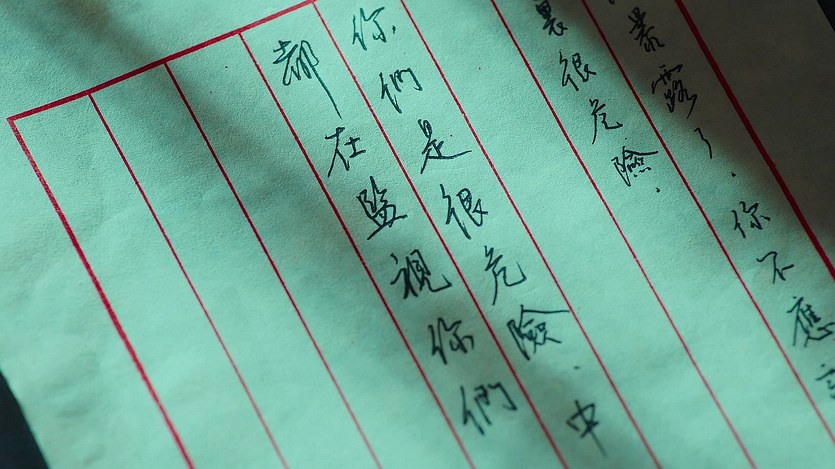 暴露了.你不應
裏很危險.
你們是很危險.中
都在監視你們